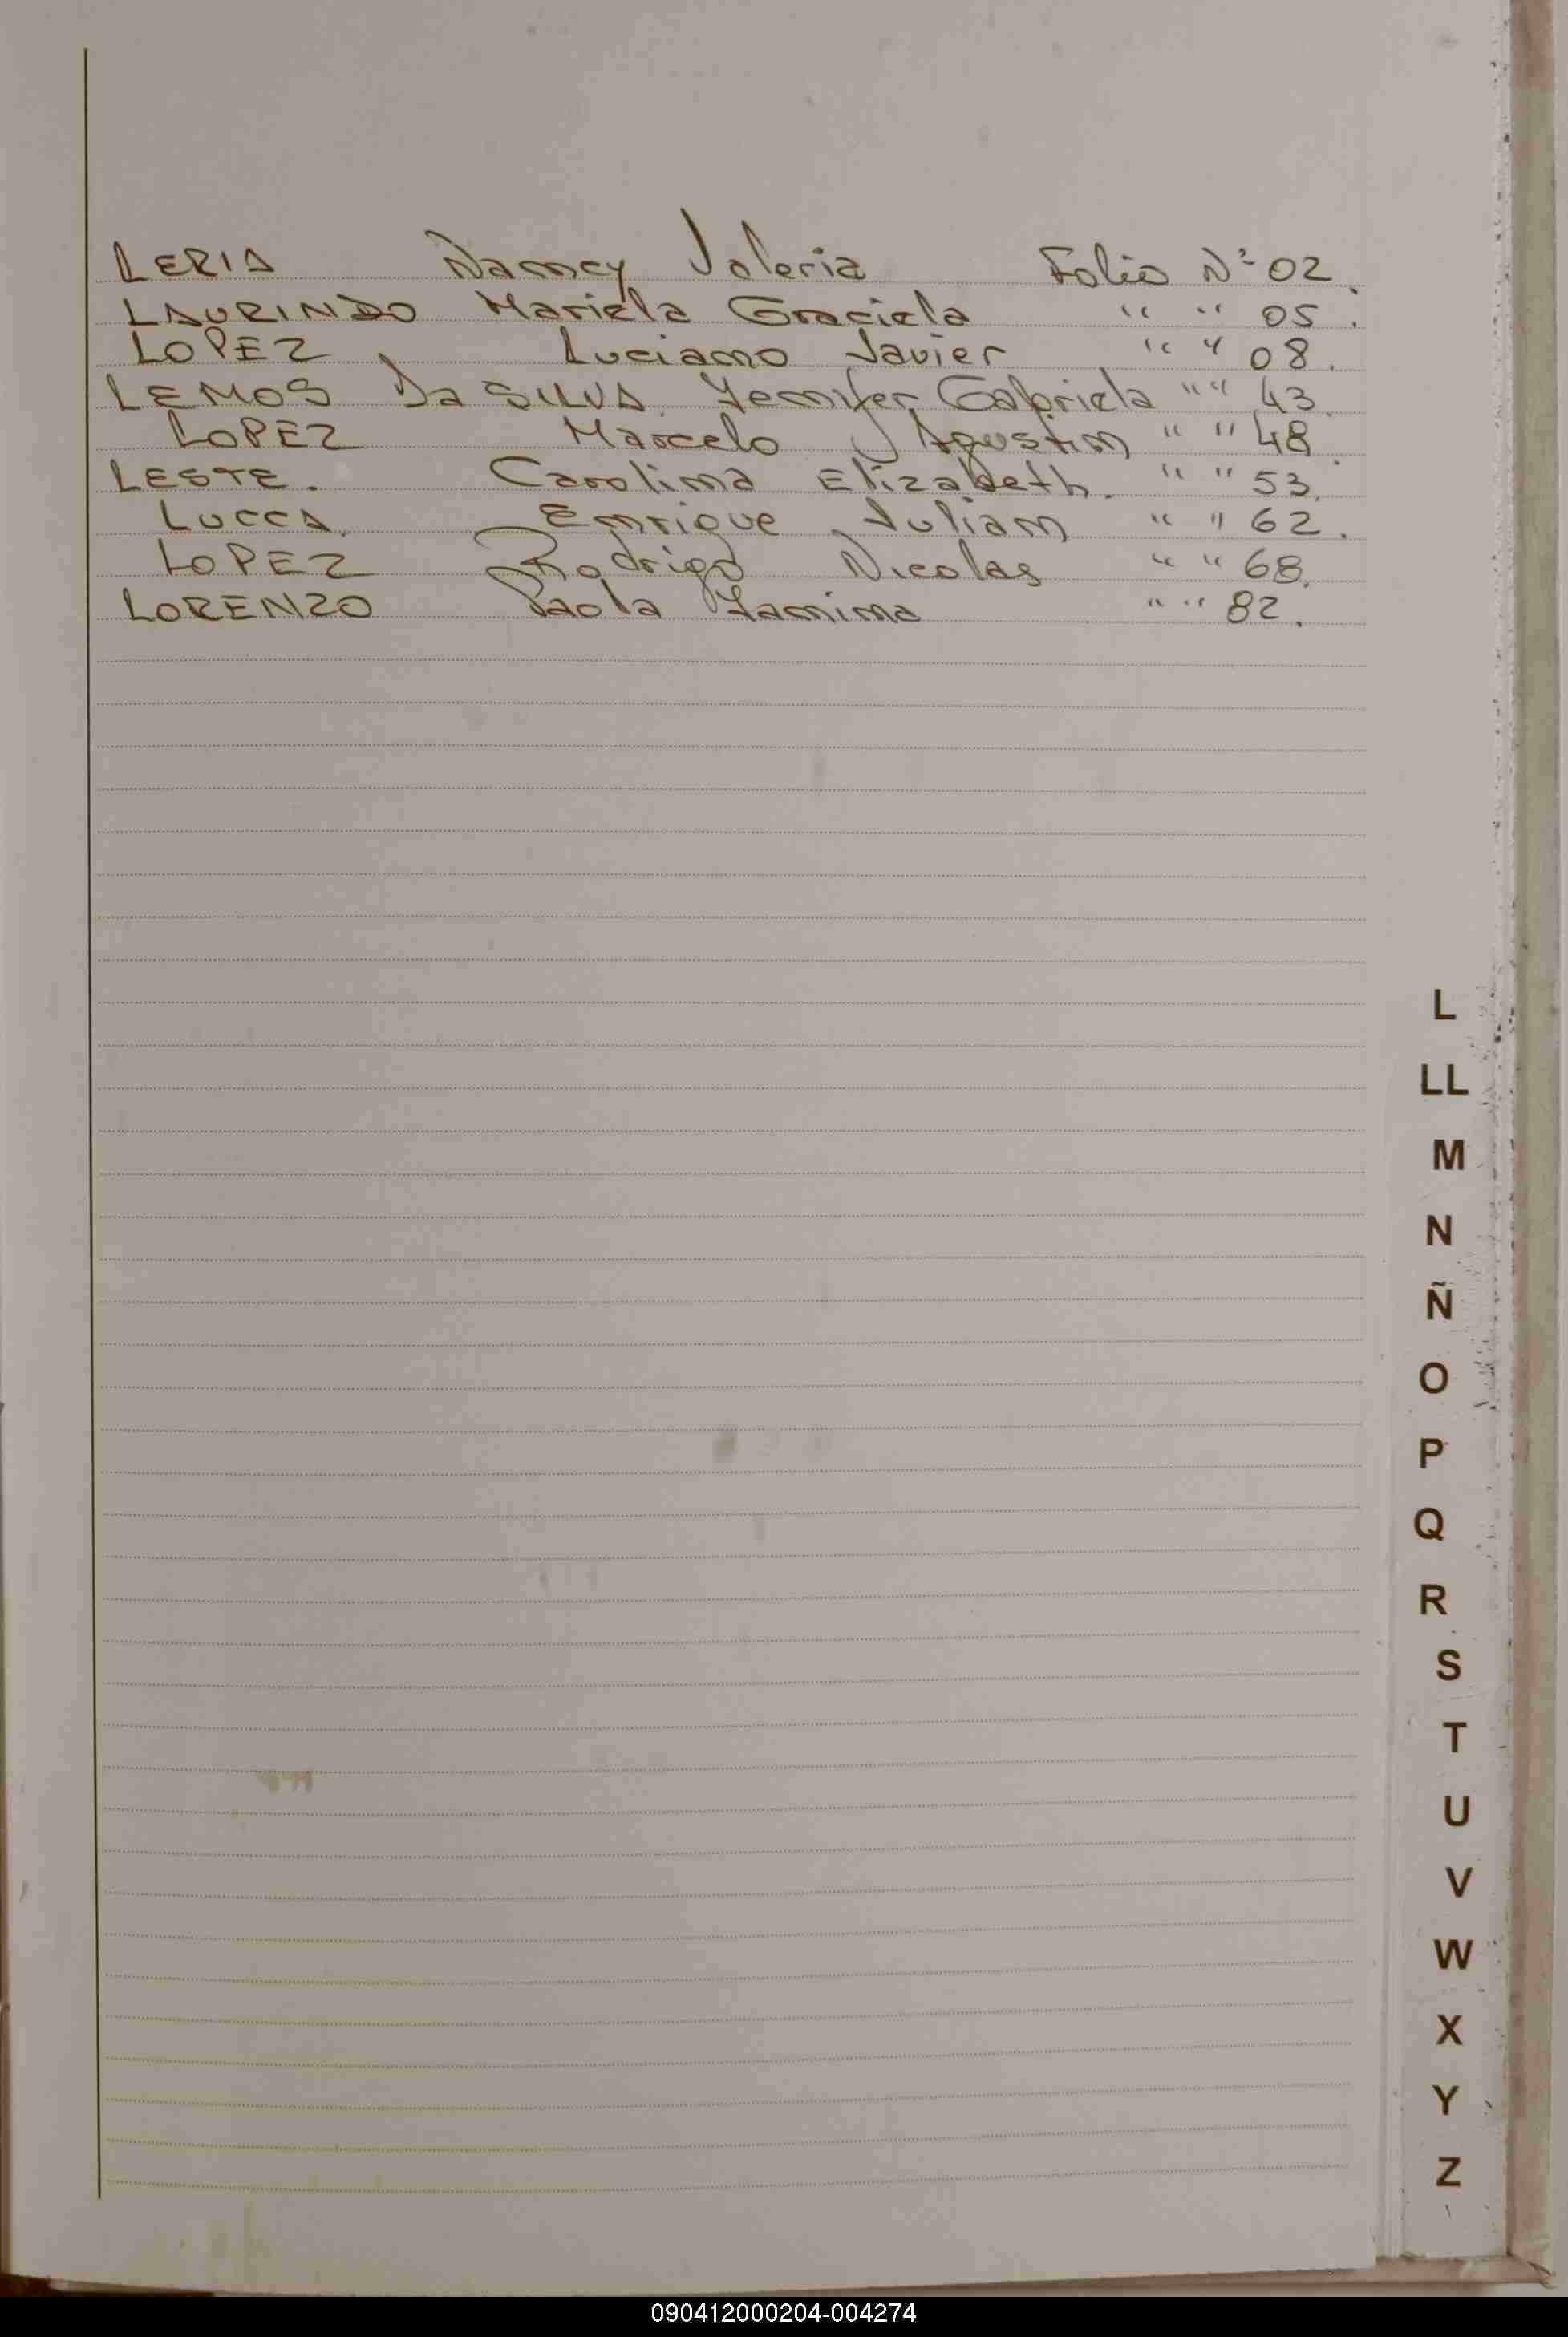 LERIA Nancy Valeria Folio Nº 02.
LAURINDO Mariela Graciela " " 05.
LOPEZ Luciano Javier " " 08.
LEMOS Da SILVA. Yennifer Gabriela " " 43.
LOPEZ Marcelo Agustin " " 48.
LESTE. Carolina Elizabeth. " " 53.
LUCCA Enrique Julian " " 62.
LOPEZ Rodrigo Nicolas " " 68.
LORENZO Paola Yanina " " 82.
L
LL
M
N
Ñ
O
P
Q
R
S
T
U
V
W
X
Y
Z
090412000204-004274